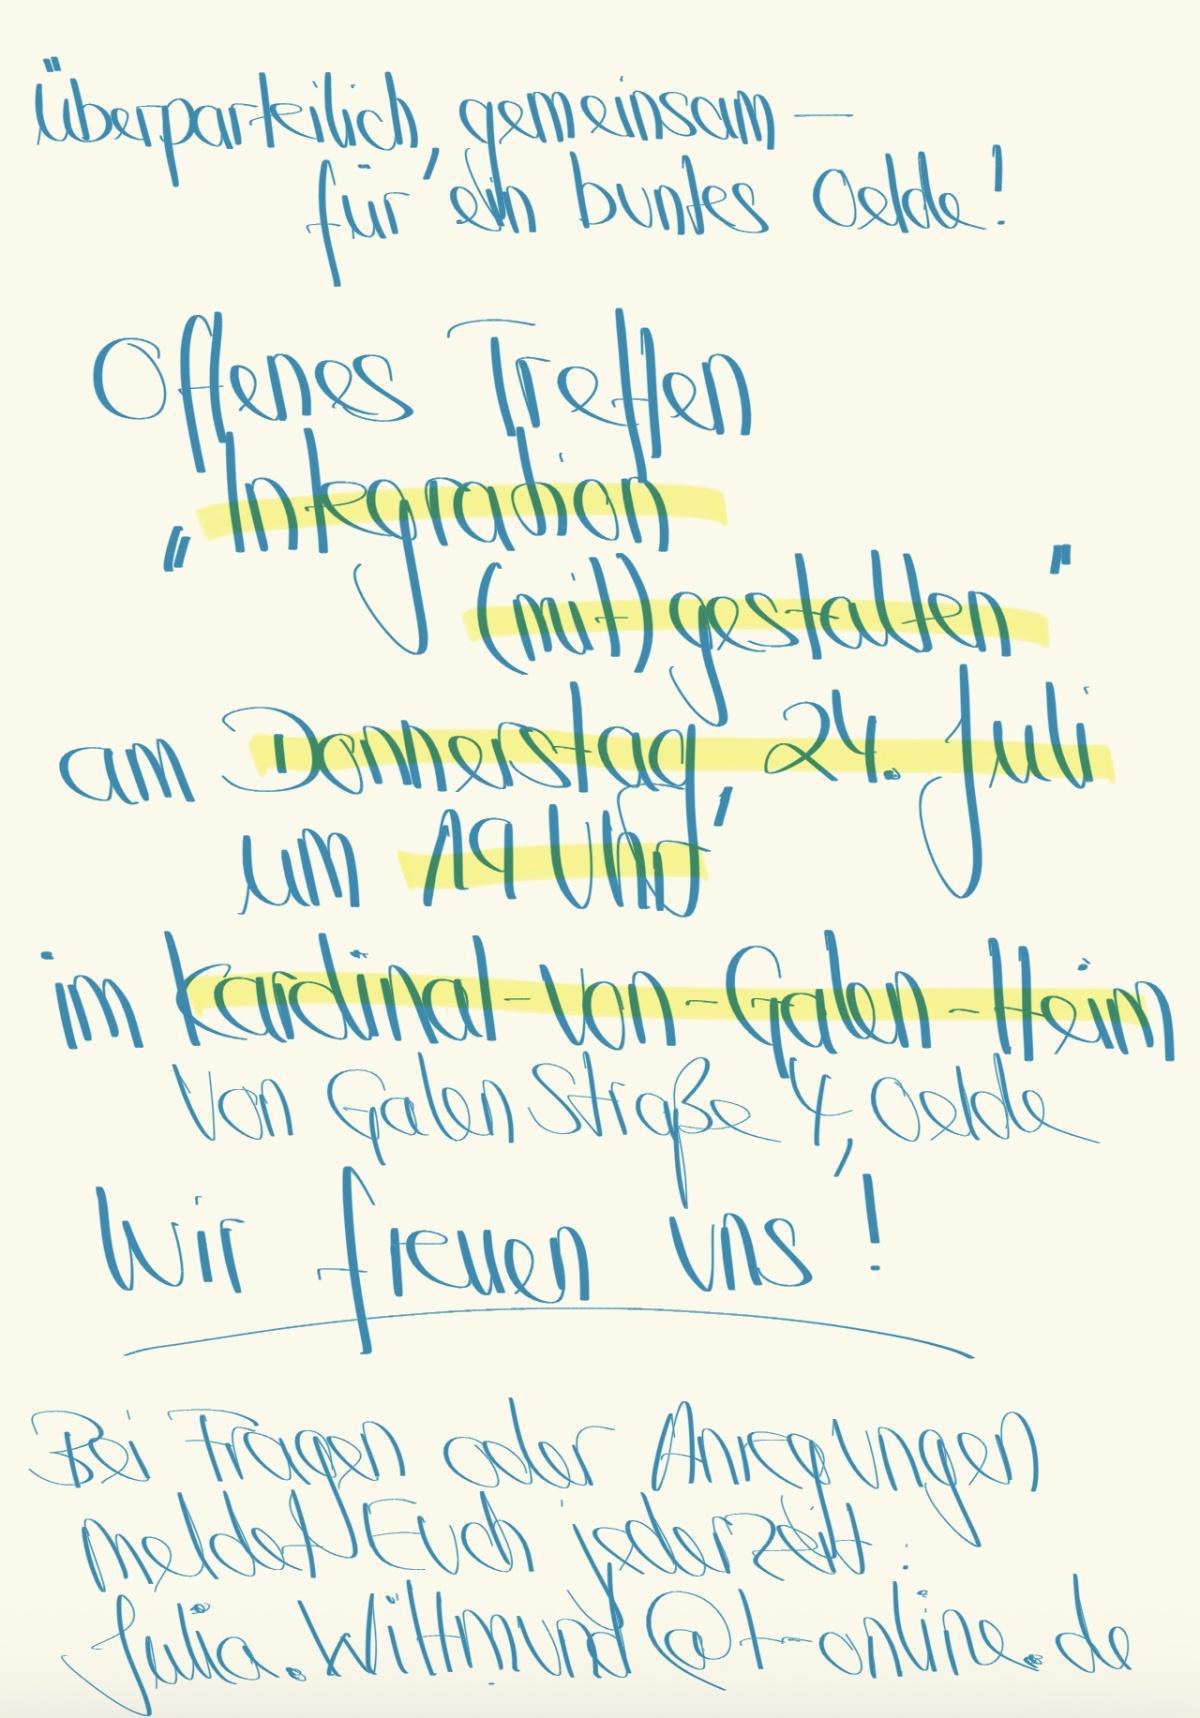 Überparteilich, gemeinsam –
für ein buntes Oelde!
Offenes Treffen
„Integration
(mit)gestalten"
am Donnerstag, 24. Juli
um 19 Uhr
im Kardinal-von-Galen-Heim
Von Galen Straße 4, Oelde
Wir freuen uns!
Bei Fragen oder Anregungen
meldet Euch jederzeit:
Julia.Wittmund@t-online.de